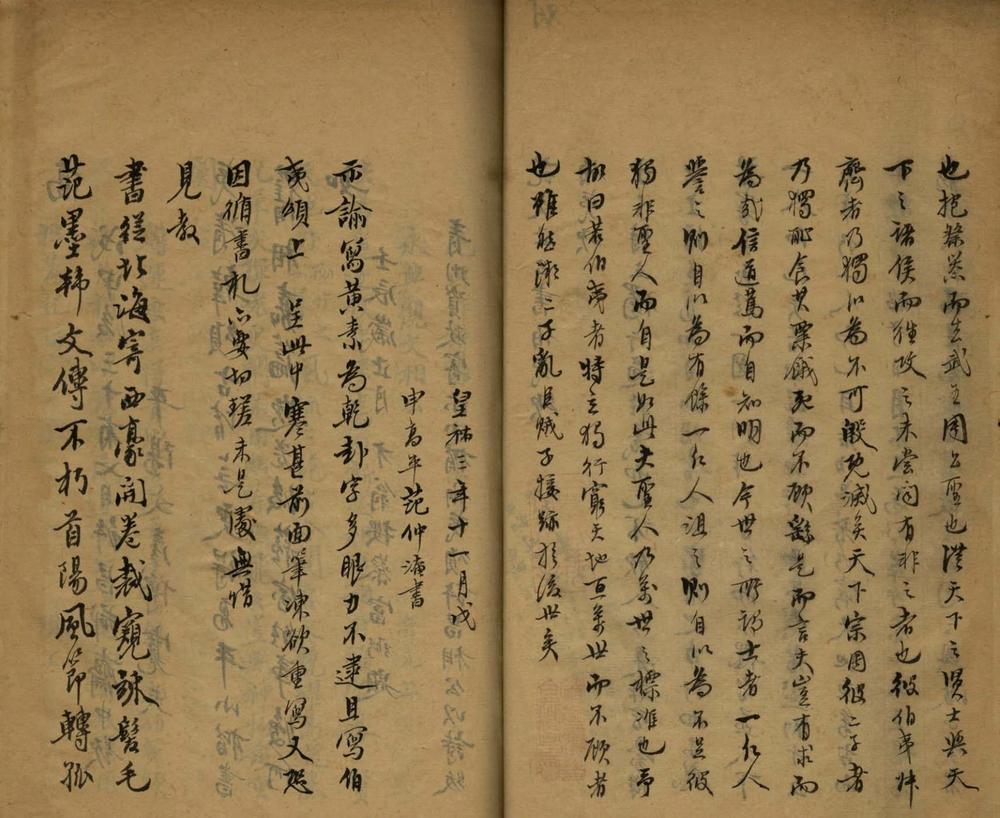 也抱祭器而去武王周公聖也從天下之賢士與天
下之諸侯而往攻之未嘗聞有非之者也彼伯夷叔
齊者乃獨以為不可殷既滅矣天下宗周彼二子者
乃獨恥食其粟餓死而不顧繇是而言夫豈有求而
為哉信道篤而自知明也今世之所謂士者一凡人
譽之則自以為有餘一凡人沮之則自以為不足彼
獨非聖人而自是如此夫聖人乃萬世之標準也予
故曰若伯夷者特立獨行窮天地亘萬世而不顧者
也雖然微二子亂臣賊子接跡於後世矣
皇祐三年十一月戊
申高平范仲淹書
示諭寫黃素為乾卦字多眼力不逮且寫伯
夷頌上 呈此中寒甚前面筆凍欲重寫又恐
因循書札亦要切磋未是處無惜
見教
書從北海寄西豪開卷裁窺竦髮毛
范墨韓文傳不朽首陽風節轉孤